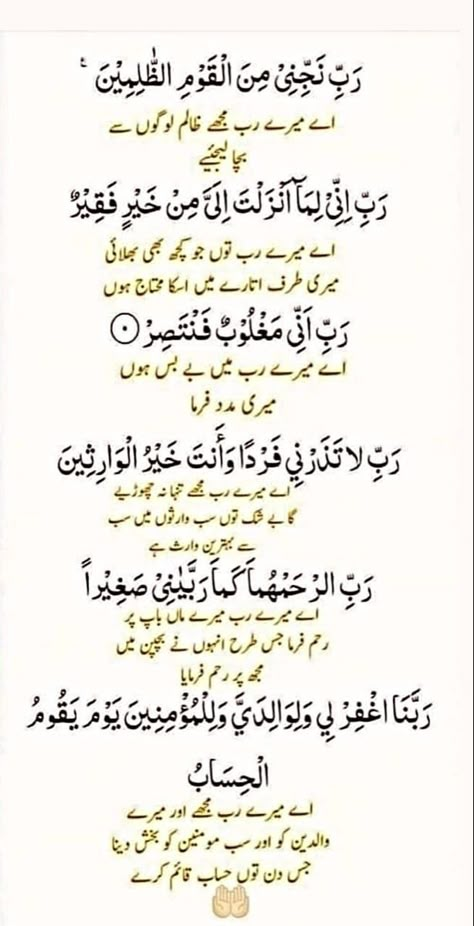 رَبِّ نَجِّنِیْ مِنَ الْقَوْمِ الظّٰلِمِیْنَ
اے میرے رب مجھے ظالم لوگوں سے
بچا لیجیئے
رَبِّ اِنِّیْ لِمَاۤ اَنْزَلْتَ اِلَیَّ مِنْ خَیْرٍ فَقِیْرٌ
اے میرے رب توں جو کچھ بھی بھلائی
میری طرف اتارے میں اسکا محتاج ہوں
رَبِّ اَنِّیْ مَغْلُوْبٌ فَنْتَصِرْ
اے میرے رب میں بے بس ہوں
میری مدد فرما
رَبِّ لا تَذَرْنِي فَرْدًا وَأَنتَ خَيْرُ الْوَارِثِينَ
اے میرے رب مجھے تنہا نہ چھوڑیے
گا بے شک توں سب وارثوں میں سب
سے بہترین وارث ہے
رَبِّ الرْحَمْهُمَا كَمَا رَبَّيٰنِیْ صَغِيْراً
اے میرے رب میرے ماں باپ پر
رحم فرما جس طرح انہوں نے بچپن میں
مجھ پر رحم فرمایا
رَبَّنَا اغْفِرْ لِي وَلِوَالِدَيَّ وَلِلْمُؤْمِنِينَ يَوْمَ يَقُومُ
الْحِسَابُ
اے میرے رب مجھے اور میرے
والدین کو اور سب مومنین کو بخش دینا
جس دن توں حساب قائم کرے